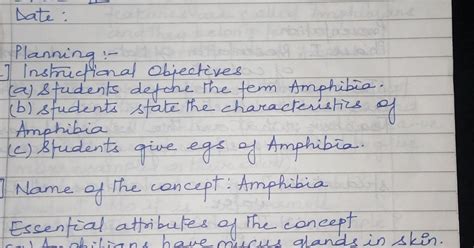 Date :
Planning :-
] Instructional Objectives
(a) Students define the term Amphibia.
(b) Students state the characteristics of
Amphibia
(c) Students give egs of Amphibia.
] Name of the concept : Amphibia
Essential attributes of the concept
(a) Amphibians have mucus glands in skin.